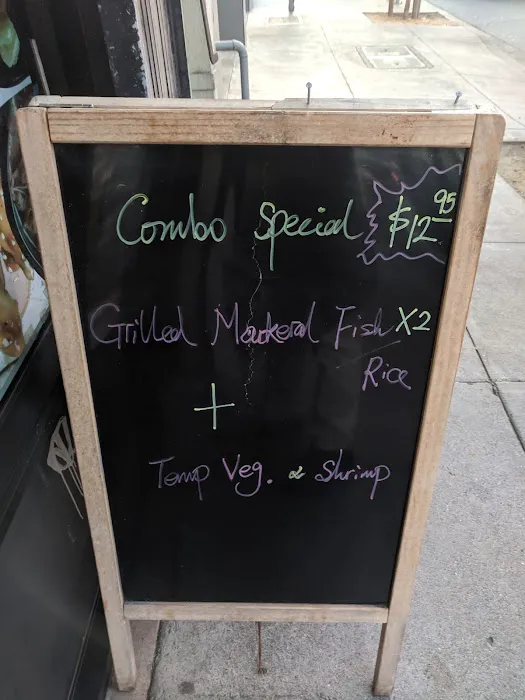 Combo Special $12.95
Grilled Mackeral Fish X2
Rice
+
Temp Veg. & Shrimp